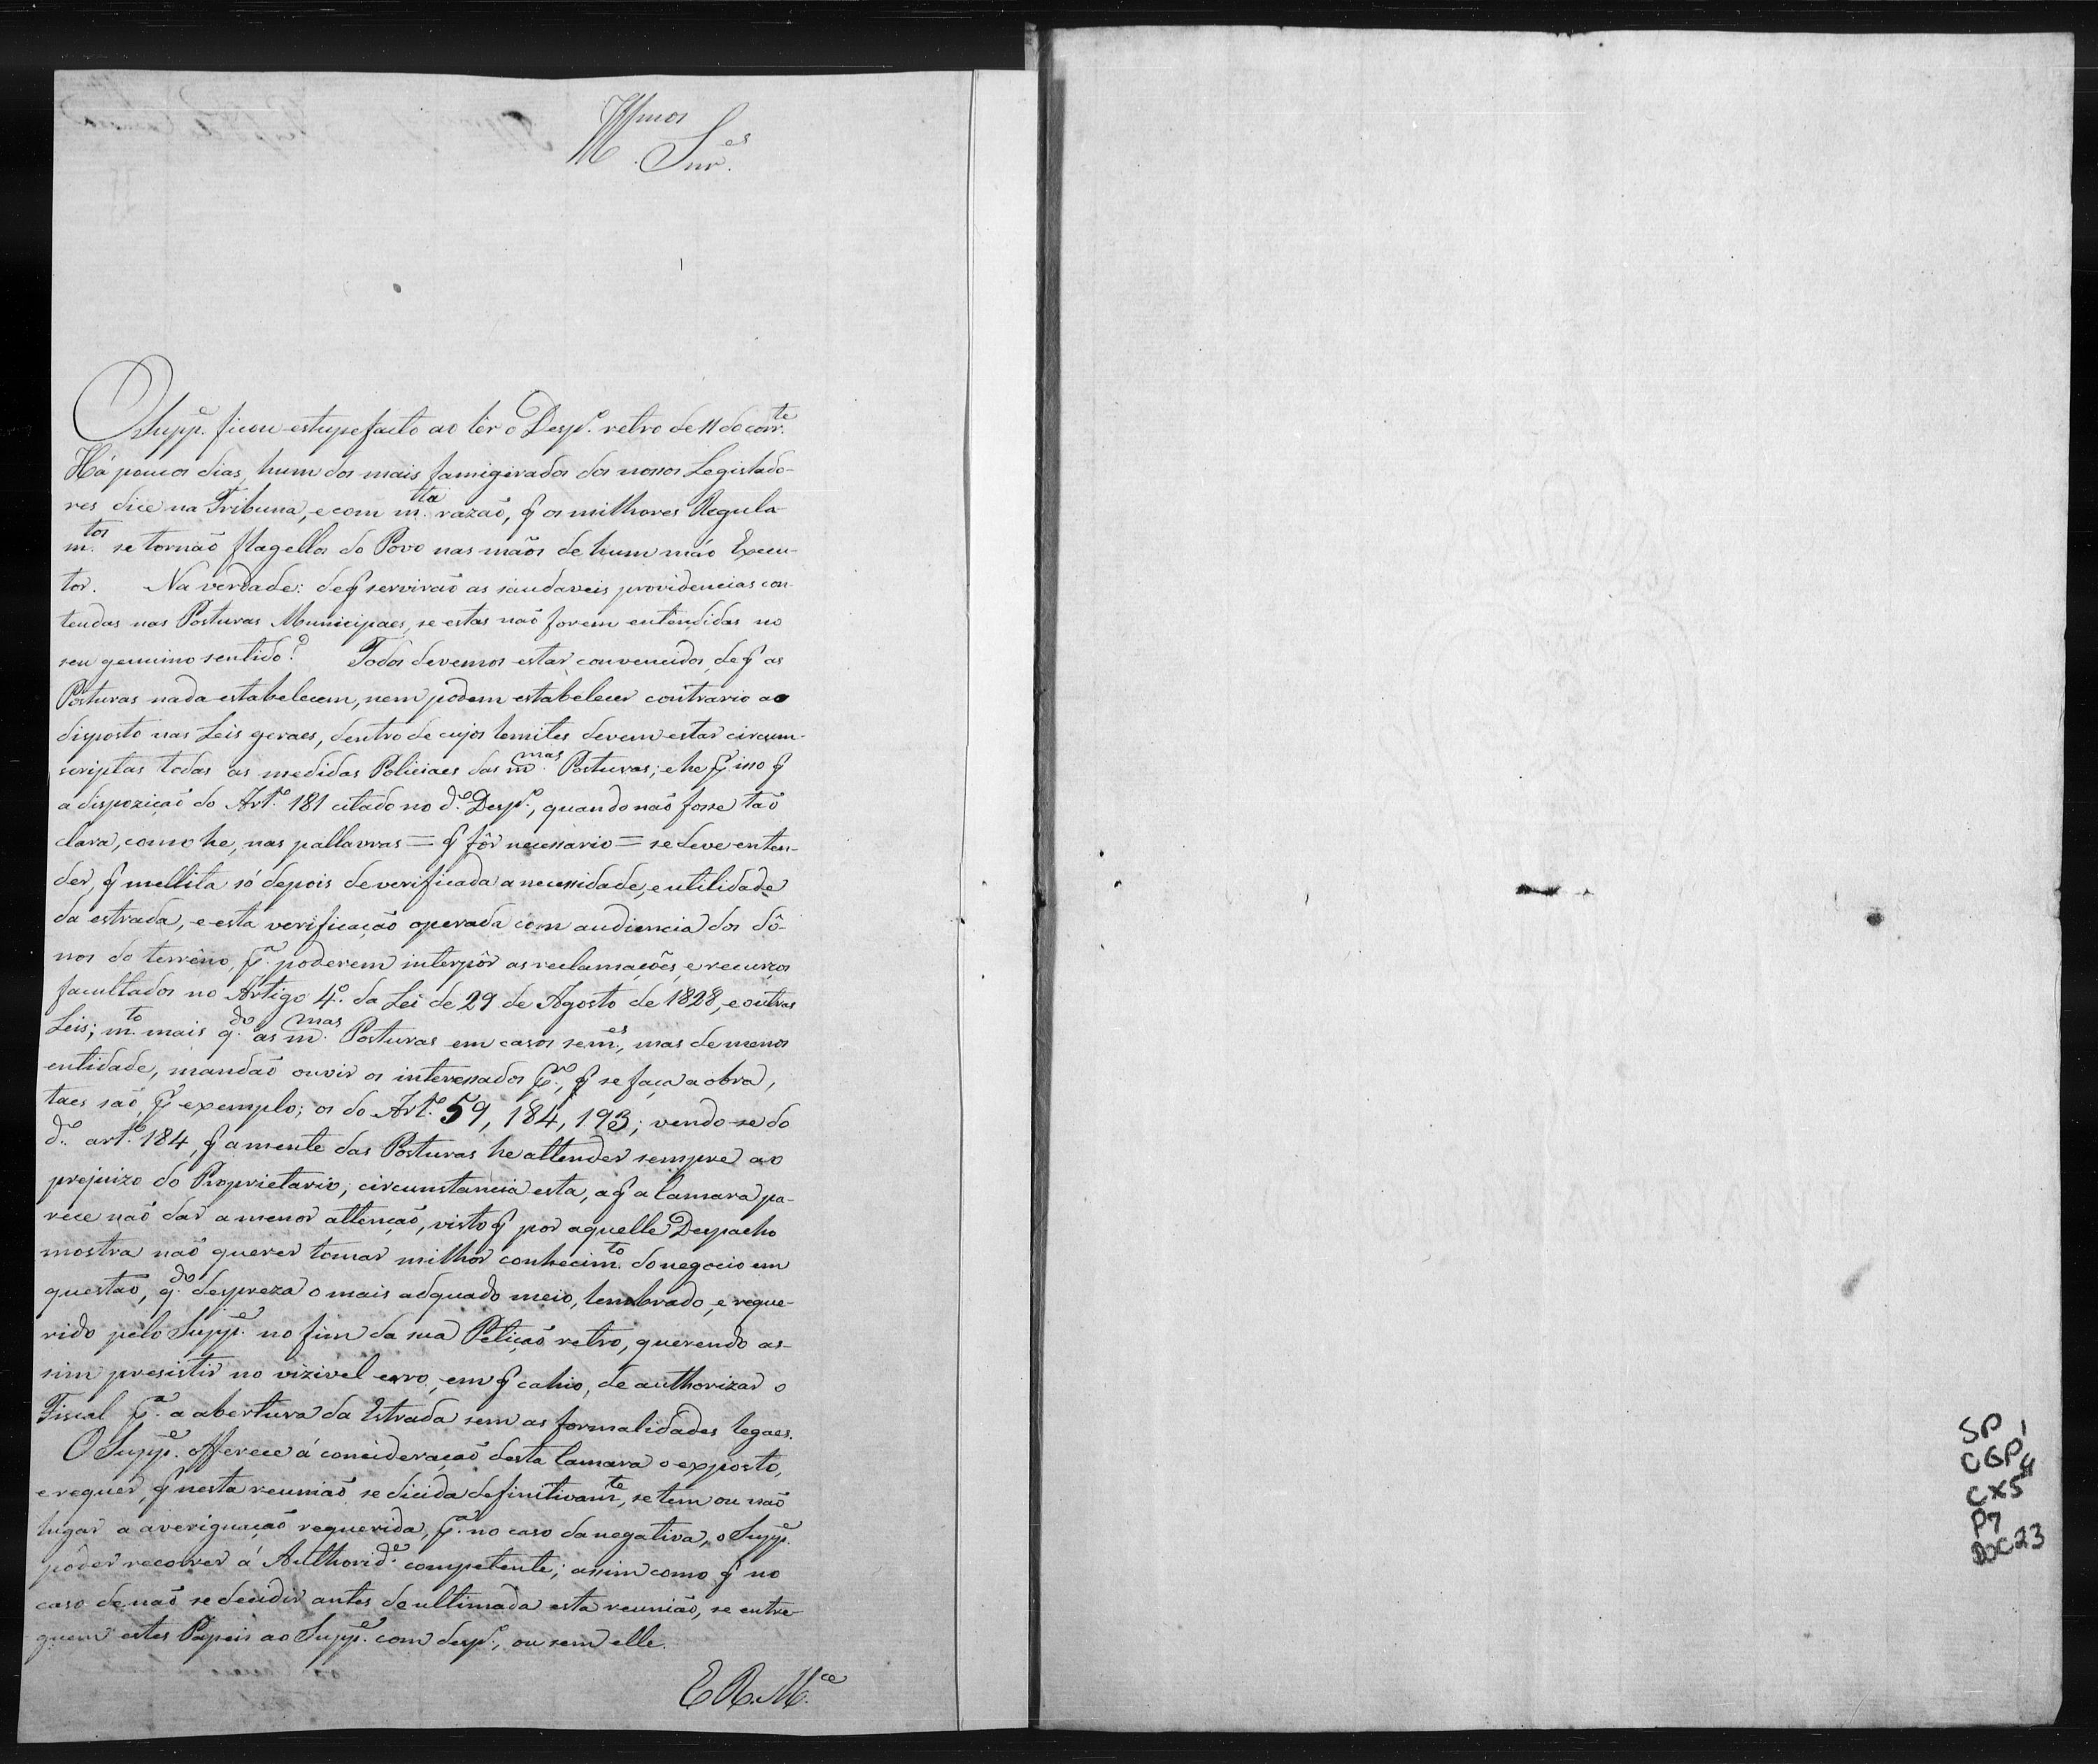 Illmos
Snr.es
O Supp.e ficou estupefacto ao lêr o Desp.o retro de 11 do corr.te
Há poucos dias, hum dos mais famigerados dos nossos Legislado-
res dice na Tribuna, e com m.tta razaõ, q os milhores Regula-
m.tos se tornaõ flagellos do Povo nas mãos de hum máo Execu-
tor. Na verdade: de q serviraõ as saudaveis providencias con-
teudas nas Posturas Municipaes, se estas naõ forem entendidas no
seu genuino sentido? Todos devemos estar convencidos, de q as
Posturas nada estabelecem, nem podem estabelecer contrario ao
disposto nas Leis geraes, dentro de cujos lemites devem estar circum-
scriptas todas as medidas Policiaes das m.mas Posturas; e he p.r isso q
a dispoziçaõ do Art.o 181 citado no d.o Desp.o, quando naõ fosse taõ
clara, como he, nas pallavras = q fôr necessario = se deve enten-
der, q mellita só depois de verificada a necessidade, e utilidade
da estrada, e esta verificaçaõ operada com audiencia dos dô-
nos do terrêno, p.a poderem interpôr as reclamações, e recurços
facultados no Artigo 4.o da Lei de 29 de Agosto de 1828, e outras
Leis; m.to mais q.do as m.mas Posturas em casos sem.es, mas de menos
entidade, mandaõ ouvir os interessados p.a q se faça a obra,
taes saõ, p.r exemplo; os do Art.o 59, 184, 193; vendo-se do
d.o art.o 184, q a mente das Posturas he attender sempre ao
prejuizo do Proprietario; circunstancia esta, a q a Camara pa-
rece naõ dar a menor attençaõ, visto q por aquelle Despacho
mostra naõ querer tomar milhor conhecim.to do negocio em
questaõ, q.do despreza o mais adquado meio, lembrado, e reque-
rido pelo Supp.e no fim da sua Petiçaõ retro, querendo as-
sim presistir no vizivel erro, em q cahio, de authorizar o
Fiscal p.a a abertura da Estrada sem as formalidades legaes.
O Supp.e offerece á concideraçaõ desta Camara o exposto,
e requer, q nesta reuniaõ se dicida definitivam.te, se tem ou naõ
lugar a averiguaçaõ requerida, p.a no caso da negativa, o Supp.e
pôder recorrer á Authorid.e competente; assim como q no
caso de naõ se decidir antes de ultimada esta reunião, se entre-
guem estes Papeis ao Supp.e com desp.o, ou sem elle.
E R. M.ce
SP
CGP1
CX54
P7
DOC23